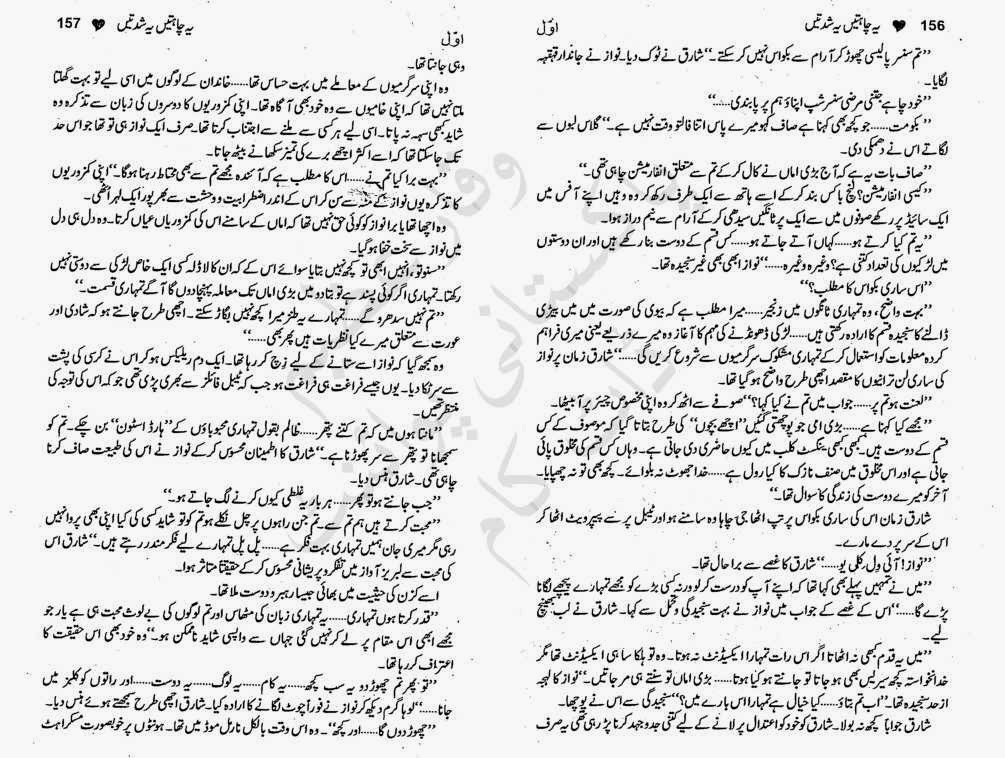 156 ♥ یہ چاہتیں یہ شدتیں
اوّل
’’تم سنسر پالیسی چھوڑ کر آرام سے بکواس نہیں کر سکتے۔‘‘ شارق نے ٹوک دیا۔ نواز نے جاندار قہقہہ
لگایا۔
’’خود چاہے جتنی مرضی سنسر شپ اپناؤ ہم پر پابندی......‘‘
’’بکومت......جو کچھ بھی کہنا ہے صاف کہو میرے پاس اتنا فالتو وقت نہیں ہے۔‘‘ گلاس لبوں سے
لگاتے اس نے دھمکی دی۔
’’صاف بات یہ ہے کہ آج بڑی اماں نے کال کر کے تم سے متعلق انفارمیشن چاہی تھی۔‘‘
’’کیسی انفارمیشن؟ لنچ باکس بند کر کے اسے ہاتھ سے ایک طرف رکھ کر وہ وہیں اپنے آفس میں
ایک سائیڈ پر رکھے صوفوں میں سے ایک پر ٹانگیں سیدھی کر کے آرام سے نیم دراز ہوا۔
’’یہ تم کیا کرتے ہو......کہاں آتے جاتے ہو......کس قسم کے دوست بنا رکھے ہیں اور ان دوستوں
میں لڑکیوں کی تعداد کتنی ہے؟ وغیرہ وغیرہ......‘‘ نواز ابھی بھی غیر سنجیدہ تھا۔
’’اس ساری بکواس کا مطلب؟‘‘
’’بہت واضح، وہ تمہاری ٹانگوں میں زنجیر......میرا مطلب ہے کہ بیوی کی صورت میں میں بیڑی
ڈالنے کا سنجیدہ قسم کا ارادہ رکھتی ہیں......لڑکی ڈھونڈنے کی مہم کا آغاز وہ میرے ذریعے یعنی میری فراہم
کردہ معلومات کو استعمال کر کے تمہاری مشکوک سرگرمیوں سے شروع کریں گی......‘‘ شارق زمان پر نواز
کی ساری لن ترانیوں کا مقصد اچھی طرح واضح ہو گیا تھا۔
’’لعنت ہو تم پر......جواب میں تم نے کیا کہا؟‘‘ صوفے سے اٹھ کر وہ اپنی مخصوص چیئر پر آ بیٹھا۔
’’مجھے کیا کہنا ہے......بڑی امی جو پوچھتی گئیں ’’اچھے بچوں‘‘ کی طرح بتاتا گیا کہ موصوف کے کس
قسم کے دوست ہیں۔ کبھی کبھی ینگسٹ کلب میں کیوں حاضری دی جاتی ہے۔ وہاں کس قسم کی مخلوق پائی
جاتی ہے اور اس مخلوق میں صنف نازک کا کیا رول ہے......خدا جھوٹ نہ بلوائے۔ کچھ بھی تو نہ چھپایا۔
آخر کو میرے دوست کی زندگی کا سوال تھا۔‘‘
شارق زمان اس کی ساری بکواس پر تپ اٹھا جی چاہا وہ سامنے ہو اور ٹیبل پر سے پیپر ویٹ اٹھا کر
اس کے سر پر دے مارے۔
’’نواز! آئی ول کلی یو......‘‘ شارق کا غصے سے برا حال تھا۔
’’میں نے تمہیں پہلے بھی کہا تھا کہ اپنے آپ کو درست کر لو ورنہ کسی بڑے کو مجھے تمہارے پیچھے لگانا
پڑے گا......‘‘ اس کے غصے کے جواب میں نواز نے بہت سنجیدگی و تحمل سے کہا۔ شارق نے لب بھینچ
لیے۔
’’میں یہ قدم کبھی نہ اٹھاتا اگر اس رات تمہارا ایکسیڈنٹ نہ ہوتا۔ وہ تو ہلکا سا ہی ایکسیڈنٹ تھا مگر
خدانخواستہ کچھ سیریس بھی ہو جاتا تو جانتے ہو کیا ہوتا......بڑی اماں تو سنتے ہی مر جاتیں۔‘‘ نواز کا لہجہ
از حد سنجیدہ تھا۔ ’’اب تم بتاؤ......کیا خیال ہے تمہارا اس بارے میں؟‘‘ سنجیدگی سے اس نے پوچھا۔
شارق جواباً کچھ نہ بولا۔ شارق کو خود کو اعتدال پر لانے کے لیے کتنی جدوجہد کرنا پڑ رہی تھی یہ صرف
157 ♥ یہ چاہتیں یہ شدتیں
اوّل
وہی جانتا تھا۔
وہ اپنی سرگرمیوں کے معاملے میں بہت حساس تھا......خاندان کے لوگوں میں اسی لیے تو بہت گھلتا
ملتا نہیں تھا کہ اپنی خامیوں سے وہ خود بھی آگاہ تھا۔ اپنی کمزوریوں کا دوسروں کی زبان سے تذکرہ وہ
شاید کبھی سہہ نہ پاتا۔ اسی لیے ہر کسی سے ملنے سے اجتناب کرتا تھا۔ صرف ایک نواز ہی تو تھا جو اس حد
تک جا سکتا تھا کہ اسے اکثر اچھے برے کی تمیز سکھانے بیٹھ جاتا۔
’’بہت برا کیا تم نے......اس کا مطلب ہے کہ آئندہ مجھے تم سے بھی محتاط رہنا ہو گا۔‘‘ اپنی کمزوریوں
کا تذکرہ یوں نواز کے منہ سے سن کر اس کے اندر اضطرابیت و وحشت سے بھرپور ایک لہر اٹھی۔
وہ اچھا تھا یا برا نواز کو کوئی حق نہیں تھا کہ اماں کے سامنے اس کی کمزوریاں عیاں کرتا۔ وہ دل ہی دل
میں نواز سے سخت خفا ہو گیا۔
’’سنو تو، انہیں ابھی تو کچھ نہیں بتایا سوائے اس کے کہ ان کا لاڈلہ کسی ایک خاص لڑکی سے دوستی نہیں
رکھتا۔ تمہاری اگر کوئی پسند ہے تو بتا دو میں بڑی اماں تک معاملہ پہنچا دوں گا آگے تمہاری قسمت۔‘‘
’’تم نہیں سدھرو گے......تمہارے یہ طنز میرا کچھ نہیں بگاڑ سکتے۔ اچھی طرح جانتے ہو کہ شادی اور
عورت سے متعلق میرے کیا نظریات ہیں پھر بھی......‘‘
وہ سمجھ گیا کہ نواز اسے ستانے کے لیے زچ کر رہا تھا۔ ایک دم ریلیکس ہو کر اس نے کرسی کی پشت
سے سر ٹکا دیا۔ یوں جیسے فراغت ہی فراغت ہو جب کہ ٹیبل فائلز سے بھری پڑی تھی جو کہ اس کی توجہ کی
منتظر تھیں۔
’’مانتا ہوں میں کہ تم کتنے پتھر......ظالم بقول تمہاری محبوباؤں کے ’’ہارڈ اسٹون‘‘ بن چکے۔ تم کو
سمجھانا تو پتھر سے سر پھوڑنا ہے۔‘‘ شارق کا اطمینان محسوس کر کے نواز نے اس کی طبیعت صاف کرنا
چاہی تھی۔ شارق ہنس دیا۔
’’جب جانتے ہو تو پھر......ہر بار یہ غلطی کیوں کرنے لگ جاتے ہو۔‘‘
’’محبت کرتے ہیں ہم تم سے۔ تم جن راہوں پر چل نکلے ہو تم کو تو شاید کسی کی کیا اپنی بھی پروا نہیں
رہی مگر میری جان ہمیں تمہاری بہت فکر ہے......پل پل تمہارے لیے فکر مند رہتے ہیں۔‘‘ شارق اس
کی محبت سے لبریز آواز میں تفکر و پریشانی محسوس کر کے حقیقتاً متاثر ہوا۔
اسے کزن کی حیثیت میں بھائی جیسا رہبر و دوست ملا تھا۔
’’قدر کرتا ہوں تمہاری......یہ تمہاری زبان کی مٹھاس اور تم لوگوں کی بے لوث محبت ہی ہے یار جو
مجھے ابھی اس مقام پر لے کر نہیں گئی جہاں سے واپسی شاید ناممکن ہو۔‘‘ وہ خود بھی اس حقیقت کا
اعتراف کر رہا تھا۔
’’تو پھر تم چھوڑ دو یہ سب کچھ......یہ کام......یہ لوگ......یہ دوست......اور راتوں کو کلبز میں
جانا......‘‘ لوہا گرم دیکھ کر نواز نے فوراً چوٹ لگانے کا ارادہ کیا۔ شارق اچھی طرح سمجھتے ہوئے ہنس دیا۔
’’چھوڑ دوں گا......اور کچھ۔‘‘ وہ اس وقت بالکل نارمل موڈ میں تھا۔ ہونٹوں پر خوبصورت مسکراہٹ